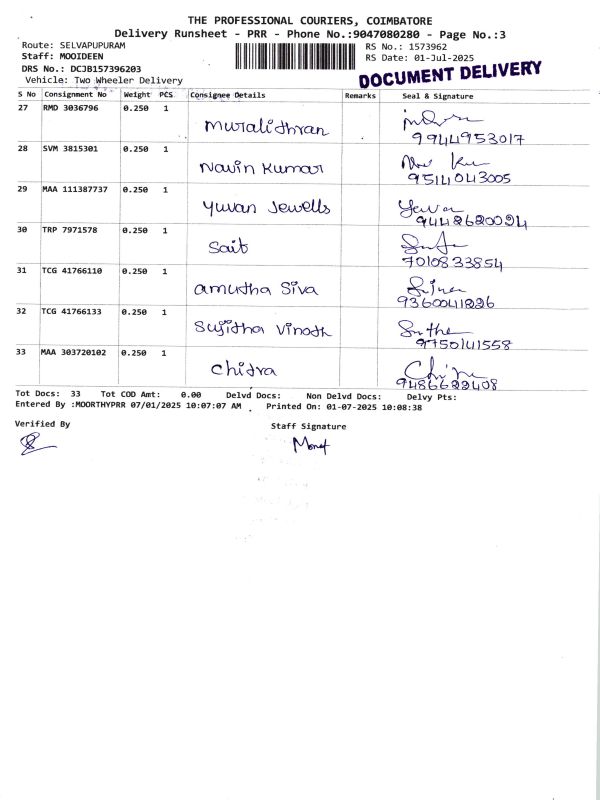 THE PROFESSIONAL COURIERS, COIMBATORE
Delivery Runsheet - PRR - Phone No.:9047080280 - Page No.:3
Route: SELVAPUPURAM
RS No.: 1573962
Staff: MOOIDEEN
RS Date: 01-Jul-2025
DRS No.: DCJB157396203
Vehicle: Two Wheeler Delivery
DOCUMENT DELIVERY
S No Consignment No Weight PCS Consignee Details Remarks Seal & Signature
27 RMD 3036796 0.250 1 Muralidhran
9944953017
28 SVM 3815301 0.250 1 Navin Kumar
9514043005
29 MAA 111387737 0.250 1 Yuvan Jewells
9442620094
30 TRP 7971578 0.250 1 Sait
7010833854
31 TCG 41766110 0.250 1 amutha Siva
9360041226
32 TCG 41766133 0.250 1 Sujitha Vinoth
9750141558
33 MAA 303720102 0.250 1 Chitra
9486622408
Tot Docs: 33 Tot COD Amt: 0.00 Delvd Docs: Non Delvd Docs: Delvy Pts:
Entered By :MOORTHYPRR 07/01/2025 10:07:07 AM . Printed On: 01-07-2025 10:08:38
Verified By
Staff Signature